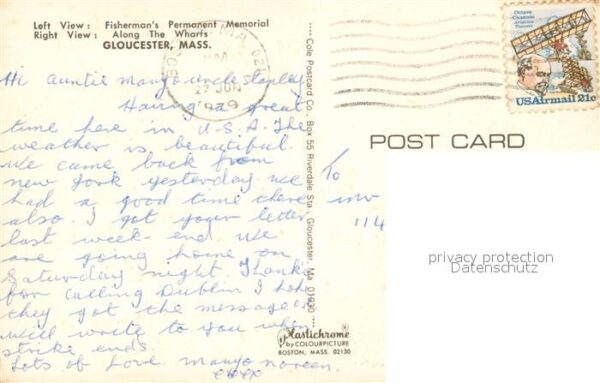 Left View: Fisherman's Permanent Memorial
Right View: Along The Wharfs
GLOUCESTER, MASS.
Hi auntie mary uncle stanley
Having a great
time here in U.S.A. The
weather is beautiful
we came back from
new york yesterday we
had a good time there
also. I got your letter
last week-end we
are going home on
Saturday night. Thanks
for calling Dublin I hope
they got the message
will write to you when
strike ends.
Lots of Love. Noreen
xxxx
Cole Postcard Co. Box 55 Riverdale Sta., Gloucester, Ma. 01930
Plastichrome®
by COLOURPICTURE
BOSTON, MASS. 02130
MA 02
PM
27 JUN
1979
Octave
Chanute
Aviation
Pioneer
USAirmail 21c
POST CARD
To
114
privacy protection
Datenschutz